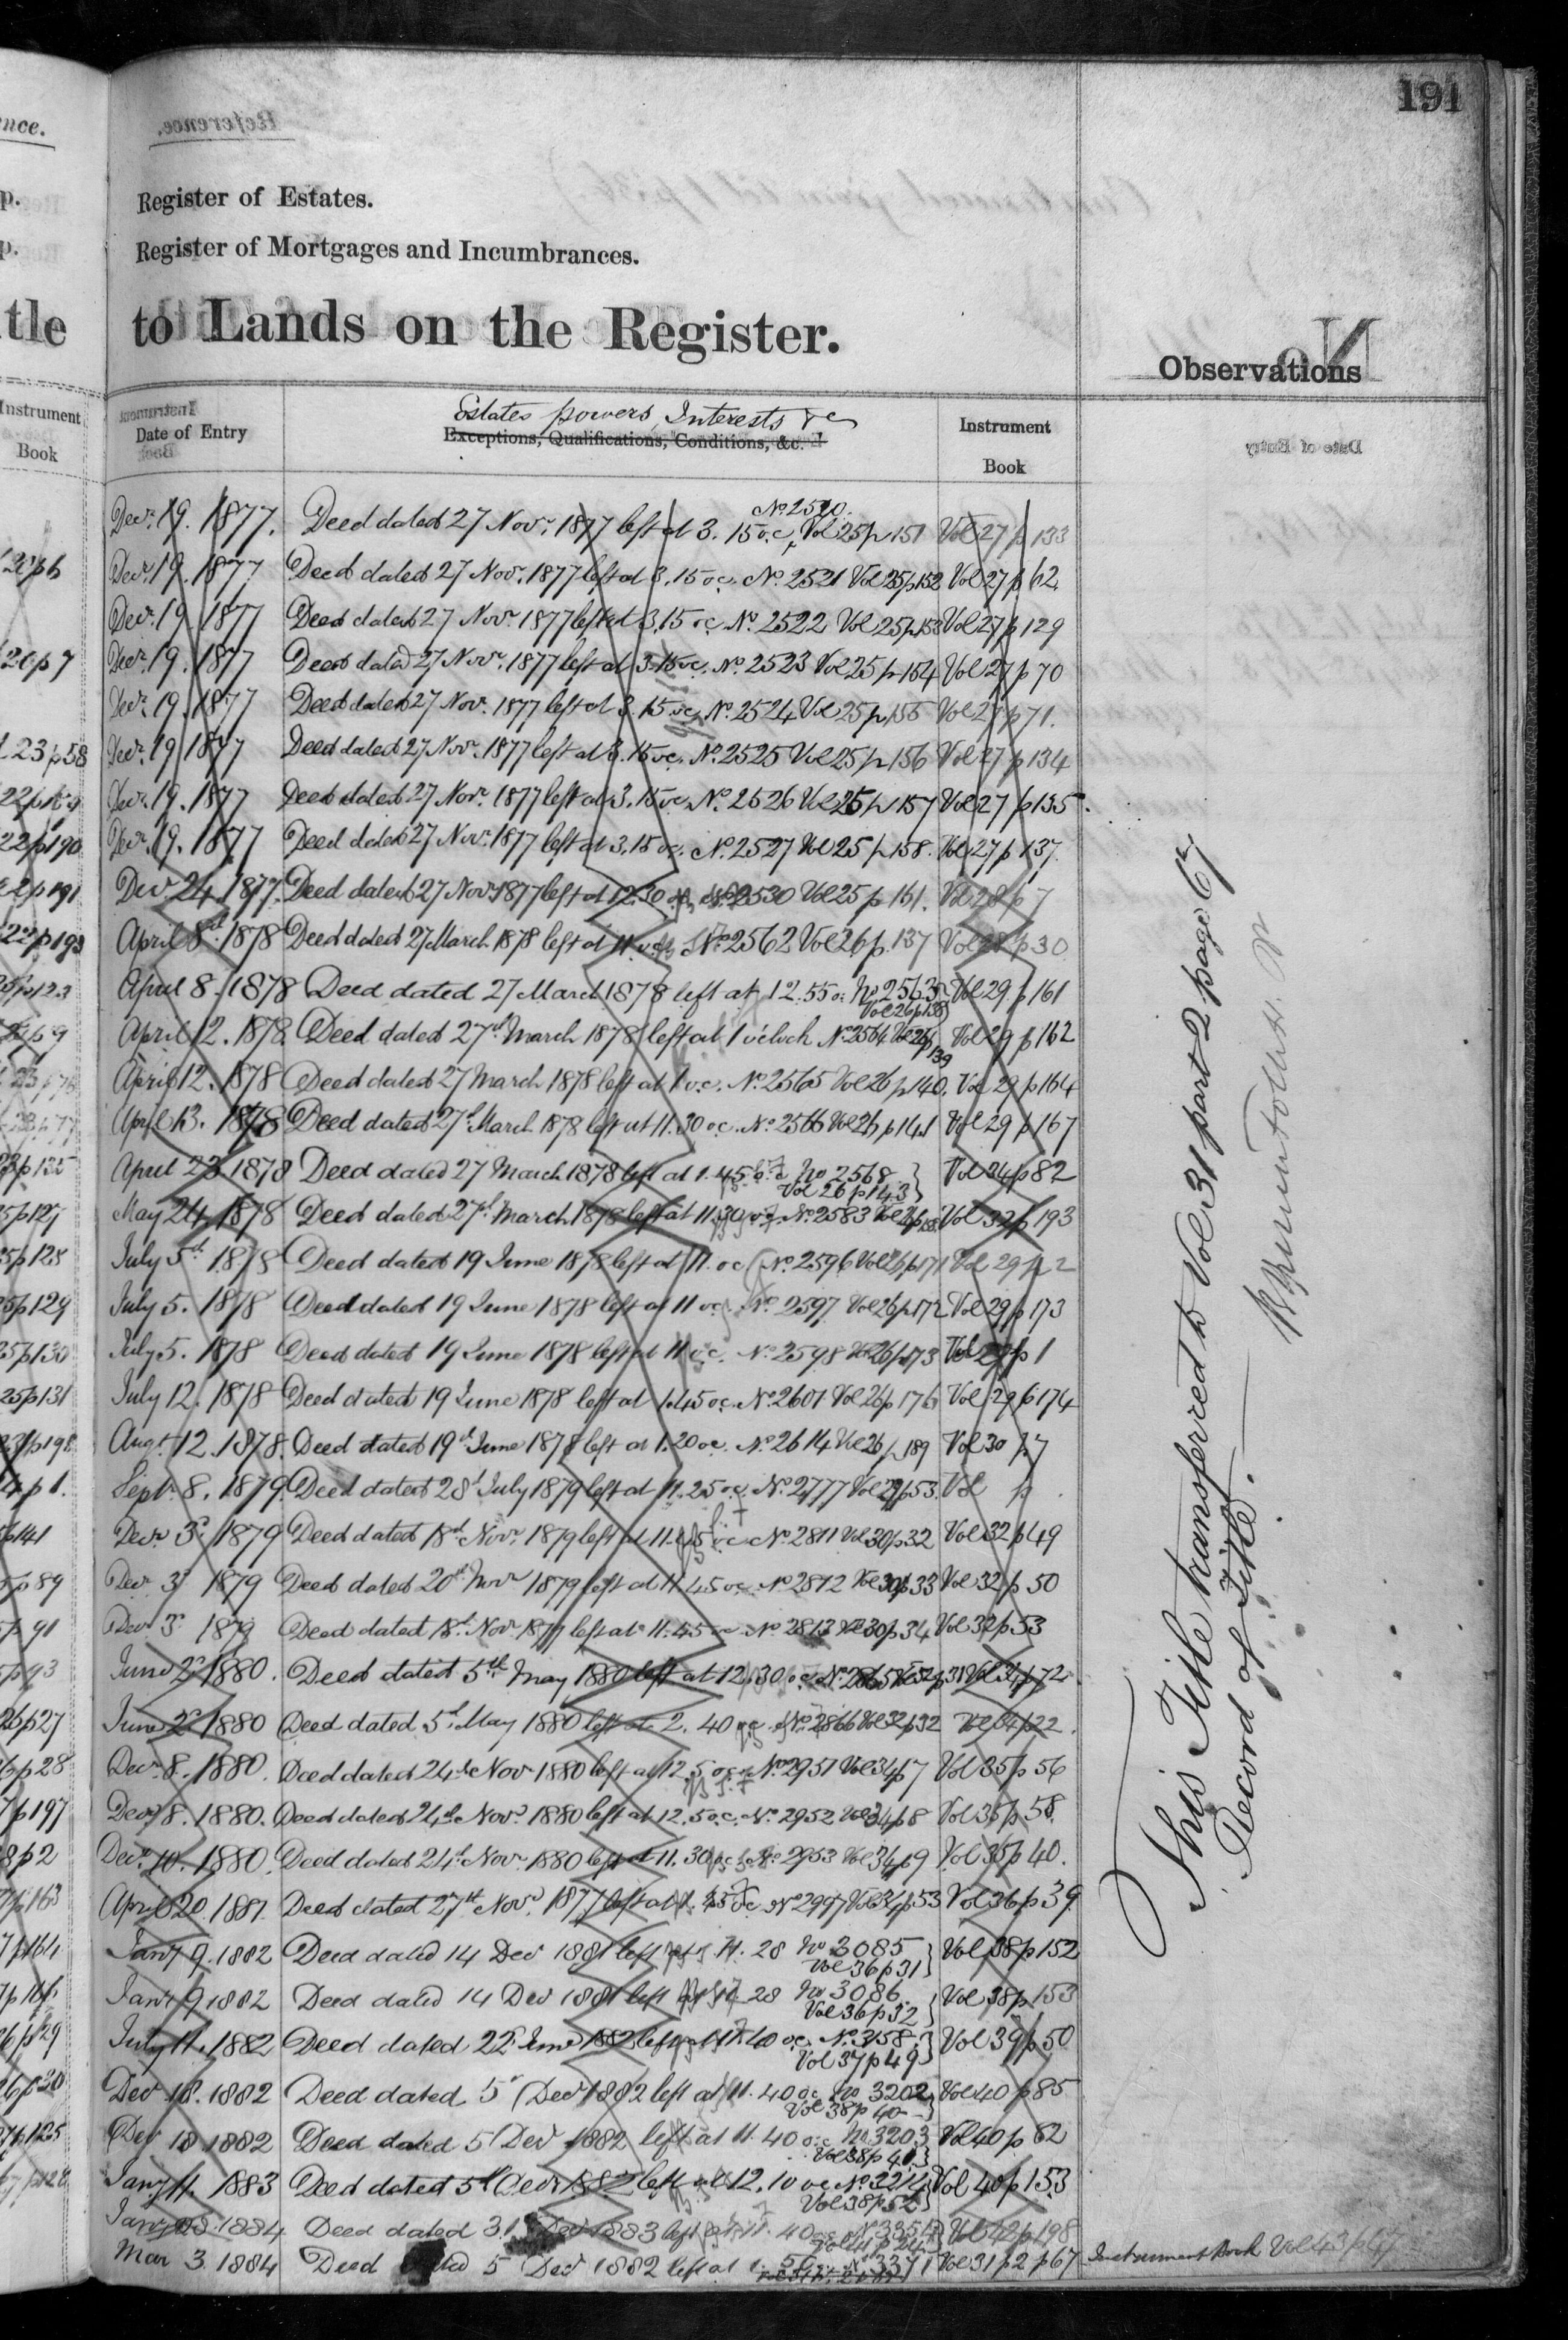 191
Register of Estates.
Register of Mortgages and Incumbrances.
tle to Lands on the Register.
Observations
Instrument Book
Date of Entry
Estates powers, Interests &c
Exceptions, Qualifications, Conditions, &c.
Instrument Book
Decr. 19. 1877. Deed dated 27 Novr. 1877 left at 3. 15 o.c. No. 2520. Vol 25 p 151 Vol 27 p 133
Decr. 19. 1877 Deed dated 27 Novr. 1877 left at 3. 15 o.c. No. 2521 Vol 25 p 152 Vol 27 p 62.
Decr. 19 1877 Deed dated 27 Novr. 1877 left at 3.15 o.c. No. 2522 Vol 25 p 153 Vol 27 p 129
Decr. 19. 1877 Deed dated 27 Novr. 1877 left at 3.15 o.c. No. 2523 Vol 25 p 154 Vol 27 p 70
Decr. 19. 1877 Deed dated 27 Novr. 1877 left at 3. 15 o.c. No. 2524 Vol 25 p 155 Vol 27 p 71.
Decr. 19 1877 Deed dated 27 Novr. 1877 left at 3. 15 o.c. No. 2525 Vol 25 p 156 Vol 27 p 134
Decr. 19. 1877 Deed dated 27 Novr. 1877 left at 3. 15 o.c. No. 2526 Vol 25 p 157 Vol 27 p 135.
Decr. 19. 1877 Deed dated 27 Novr. 1877 left at 3.15 o.c. No. 2527 Vol 25 p 158. Vol 27 p 137.
Decr. 24. 1877. Deed dated 27 Novr. 1877 left at 12.30 No. 2530 Vol 25 p 161. Vol 28 p 7
April 8th. 1878 Deed dated 27 March 1878 left at 11 No. 2562 Vol 26 p. 137 Vol 28 p 30
April 8. 1878 Deed dated 27 March 1878 left at 12.55 o. No 2563 Vol 26 p 138 Vol 29 p 161
April 12. 1878. Deed dated 27th March 1878 left at 1 o'clock No. 2564 Vol 26 p 139 Vol 29 p 162
April 12. 1878 Deed dated 27 March 1878 left at 1 o.c. No. 2565 Vol 26 p 140. Vol 29 p 164
April 13. 1878 Deed dated 27th March 1878 left at 11.30 o.c. No. 2566 Vol 26 p 141 Vol 29 p 167
April 23 1878 Deed dated 27 March 1878 left at 1.45 o.c No 2568 Vol 26 p 143 Vol 34 p 82
May 24 1878 Deed dated 27th March 1878 left at 11.30 o.c. No. 2583 Vol 32 p 193
July 5th 1878 Deed dated 19 June 1878 left at 11. oc No. 2596 Vol 26 p 171 Vol 29 p 2
July 5. 1878 Deed dated 19 June 1878 left at 11 oc. No. 2597 Vol 26 p 172 Vol 29 p 173
July 5. 1878 Deed dated 19 June 1878 left at 11 o.c. No. 2598 Vol 26 p 173 Vol 29 p 1
July 12. 1878 Deed dated 19 June 1878 left at 1.45 o.c. No. 2601 Vol 26 p 176 Vol 29 p 174
Augt. 12. 1878. Deed dated 19th June 1878 left at 1.20 o.c. No. 2614 Vol 26 p 189 Vol 30 p. 7
Septr. 8. 1879. Deed dated 28th July 1879 left at 11.25 o.c. No. 2777 Vol 29 p 53. Vol p .
Decr. 3d. 1879 Deed dated 18th Novr. 1879 left at 11.45 oc No. 2811 Vol 30 p 32 Vol 32 p 49
Decr. 3d 1879 Deed dated 20th Novr 1879 left at 11 45 oc No. 2812 Vol 30 p 33 Vol 32 p 50
Decr 3d 1879 Deed dated 18th Novr 1879 left at 11.45 No. 2813 Vol 30 p 34 Vol 32 p 53
June 2d 1880. Deed dated 5th May 1880 left at 12.30 oc No. 2865 Vol 32 p 31 Vol 34 p 72.
June 2d 1880 Deed dated 5th May 1880 left at 2. 40 oc No. 2866 Vol 32 p 32 Vol 34 p 22.
Decr. 8. 1880. Deed dated 24th Novr 1880 left at 12.5 oc No. 2951 Vol 34 p 7 Vol 35 p 56
Decr. 8. 1880. Deed dated 24th Novr 1880 left at 12.5 o.c. No. 2952 Vol 34 p 8 Vol 35 p 58.
Decr. 10. 1880. Deed dated 24th Novr 1880 left at 11. 30 No 2953 Vol 34 p 9 Vol 35 p 40.
April 20. 1881. Deed dated 27th Novr 1877 left at 1. 45 oc No 2997 Vol 34 p 53 Vol 36 p 39
Jany 9. 1882 Deed dated 14 Decr 1881 left 11. 28 No 3085 Vol 36 p 31 Vol 38 p 152
Jany 9 1882 Deed dated 14 Decr 1881 left 28 No 3086 Vol 36 p 32 Vol 38 p 153
July 11. 1882 Deed dated 22d June 1882 left at 11.40 oc. No. 3158 Vol 37 p 49 Vol 39 p 50
Decr 18. 1882 Deed dated 5th Decr 1882 left at 11. 40 oc No 3202 Vol 38 p 40 Vol 40 p 85
Decr 18 1882 Deed dated 5 Decr 1882 left at 11. 40 o.c No 3203 Vol 38 p 41 Vol 40 p 62
Jany 11. 1883 Deed dated 5th Decr 1882 left at 12.10 oc No. Vol 38 p 52 Vol 40 p 153
Jany 1884 Deed dated 31st Decr 1883 left 11. 40 Vol 41 p 24 Vol 42 p 198
Mar 3. 1884 Deed dated 5 Decr 1882 left at 1. No 3371 Vol 31 p 2 p 67 Instrument Book Vol 43 p 67
This Title transferred to Vol 31 part 2 page 67
Record of Title.